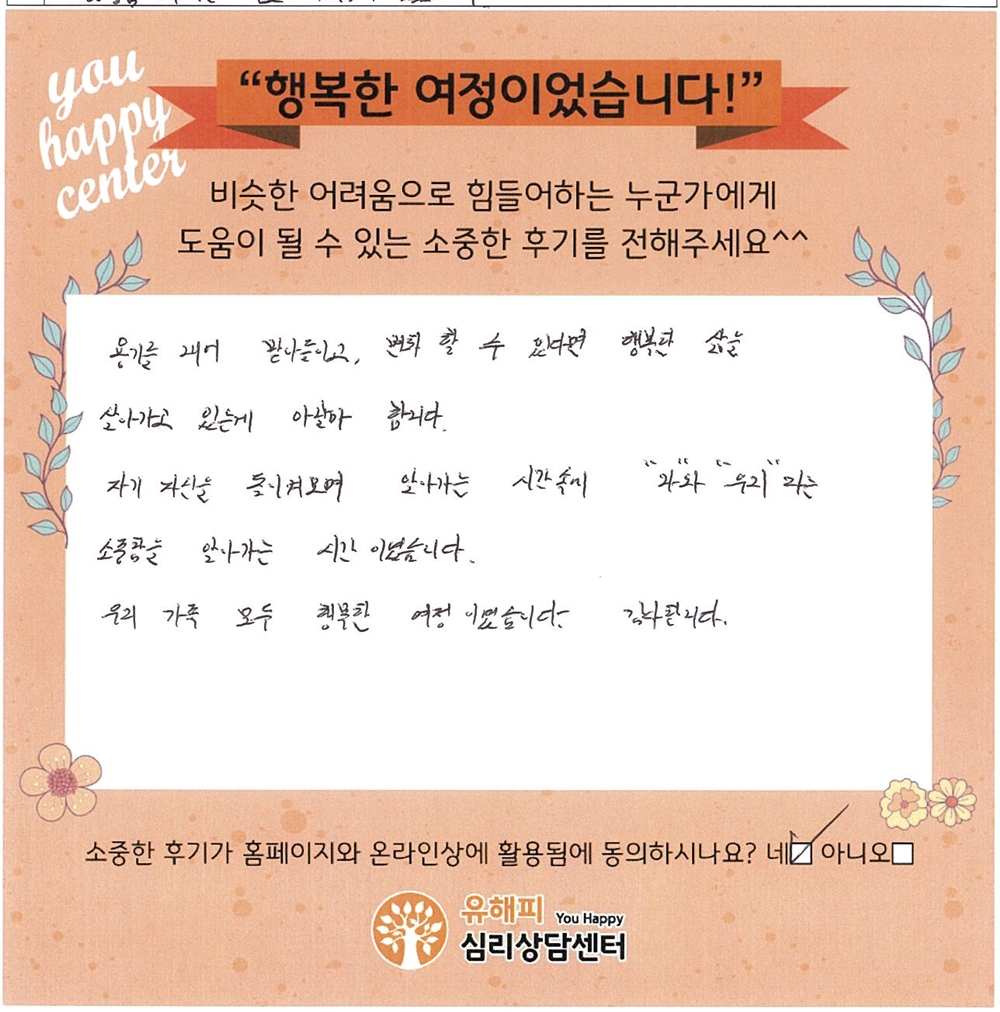 you
happy
center
“행복한 여정이었습니다!”
비슷한 어려움으로 힘들어하는 누군가에게
도움이 될 수 있는 소중한 후기를 전해주세요^^
용기를 내어 받아들이고, 변화 할 수 있다면 행복한 삶을
살아가고 있는게 아닐까 합니다.
자기 자신을 돌이켜보며 알아가는 시간속에 "나"와 "우리"라는
소중함을 알아가는 시간 이었습니다.
우리 가족 모두 행복한 여정 이었습니다. 감사합니다.
소중한 후기가 홈페이지와 온라인상에 활용됨에 동의하시나요? 네 아니오
유해피 You Happy
심리상담센터